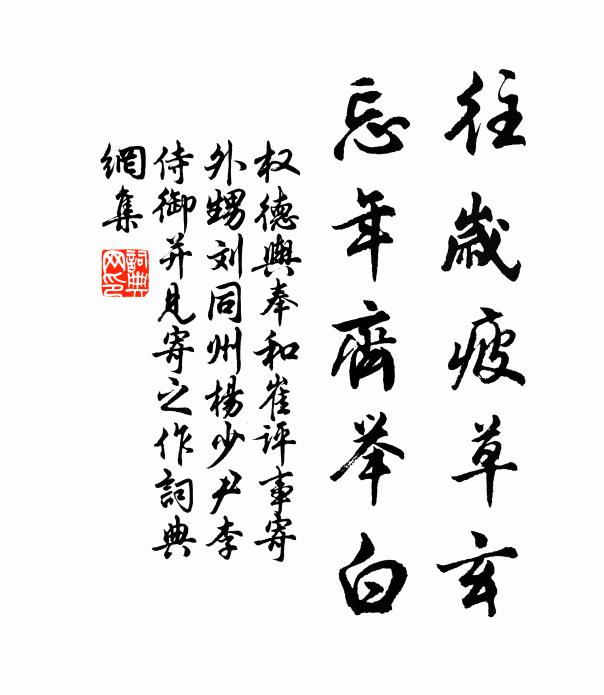 往歲疲草玄
忘年齊举白
权德輿奉和崔评事寄
外甥刘同州楊少尹李
侍御并見寄之作詞典
網集
詞典網印